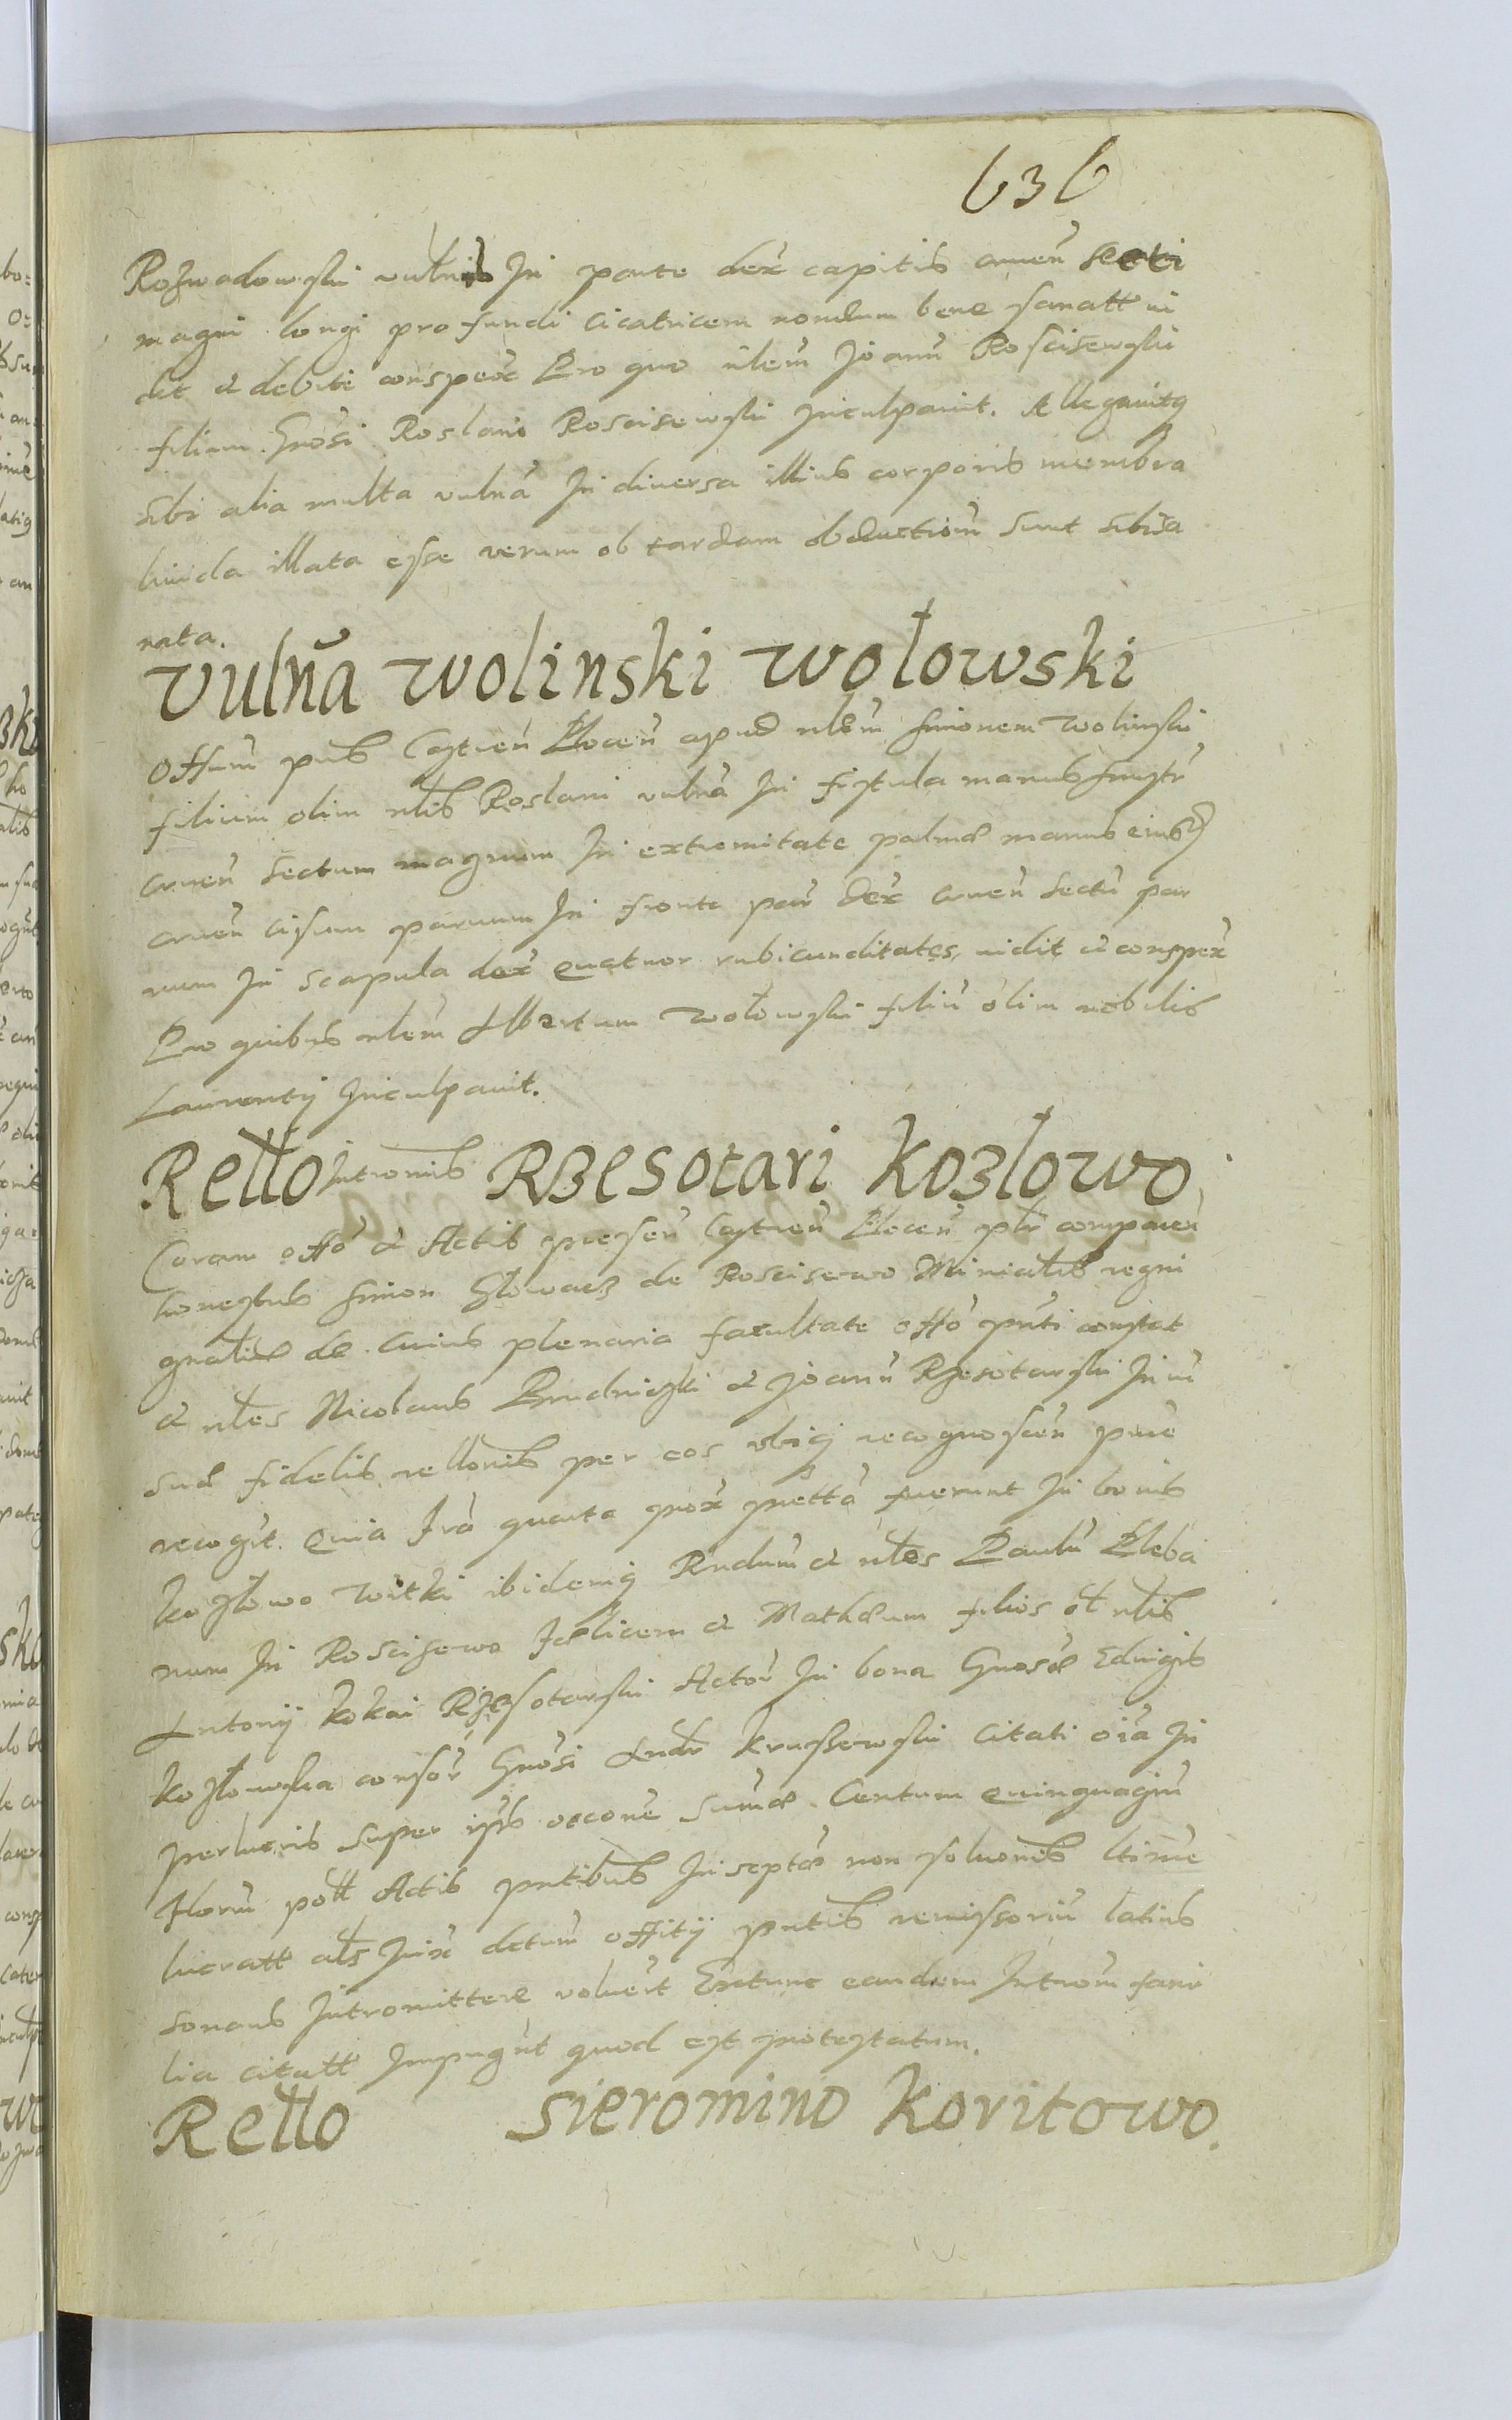 636
Rozwadowski vulnis In parte dex capitis cruen secti
magni longi profundi cicatricem nondum bene sanatt vi
dit et debite conspex Pro quo nlem Joann Rosciszewski
filium Gnosi Roslani Rosciszewski Inculpauit. Allegauitq
sibi alia multa vulna In diuersa illius corporis membra
liuida illata esse verum ob tardam obductiom sunt sibi sa
nata.
Vulna Wolinski Wołowski
Offium pns Castren Plocen apud nlem Simonem Wolinski
filium olim nlis Roslani vulna In fistula manus sinistr
cruen sectum magnum In extremitate palmæ manus eiusd
cruen cisum paruum In fronte par dex cruen sectu par
uum In scapula dex quatuor rubicunditates, vidit et conspex
Pro quibus nlem Albertum Wołowski filiu olim nobilis
Laurentij Inculpauit.
Rello Intromis Rzesotari Kozłowo
Coram offo et Actis præsen Castren Plocen plr comparen
honestus Simon Głowacz de Rosciszewo Minialis regni
gnalis de cuius plenaria facultate offo pnti constat
et nles Nicolaus Brudnicki et Joann Rzesotarski In vi
suæ fidelis rellonis per eos vbiq recognoscen pure
recogt. Quia fra quarta prox prætta fuerunt In bonis
Kozłowo Witki ibidemq Rndum et nles Paulu Pleba
num In Rosciszewo Fælicem et Mathæum filios ol nlis
Antonij Kokai Rzesotarski Actor In bona Gnosæ Eduigis
Kozłowska consor Gnosi Andr Krussewski Citati oia In
perlucris super ipsis occone sumæ Centum Quinquaginta
floru poll Actis pntibus Inseptæ non soluonis ltime
lucratt als Iuix dctum offitij pntis remissoriu latius
sonans Intromittere voluert Extunc eandem Introm fami
lia citatt Impugnt quod est protestatum.
Rello Sieromino Koritowo.